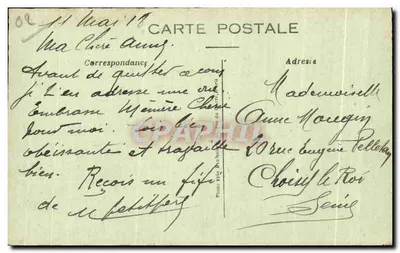 11 Mai 19
CARTE POSTALE
Ma Chère Anne
Correspondance
Adresse
Avant de quitter
je t'en adresse une vue
Embrasse Mémère Chérie
pour moi. bien
obéissante et travaille
bien. Reçois un fifi
de
Mademoiselle
Anne Mougin
20 rue Eugène Pelletan
Choisy le Roi
Seine
CARTE-PHILA